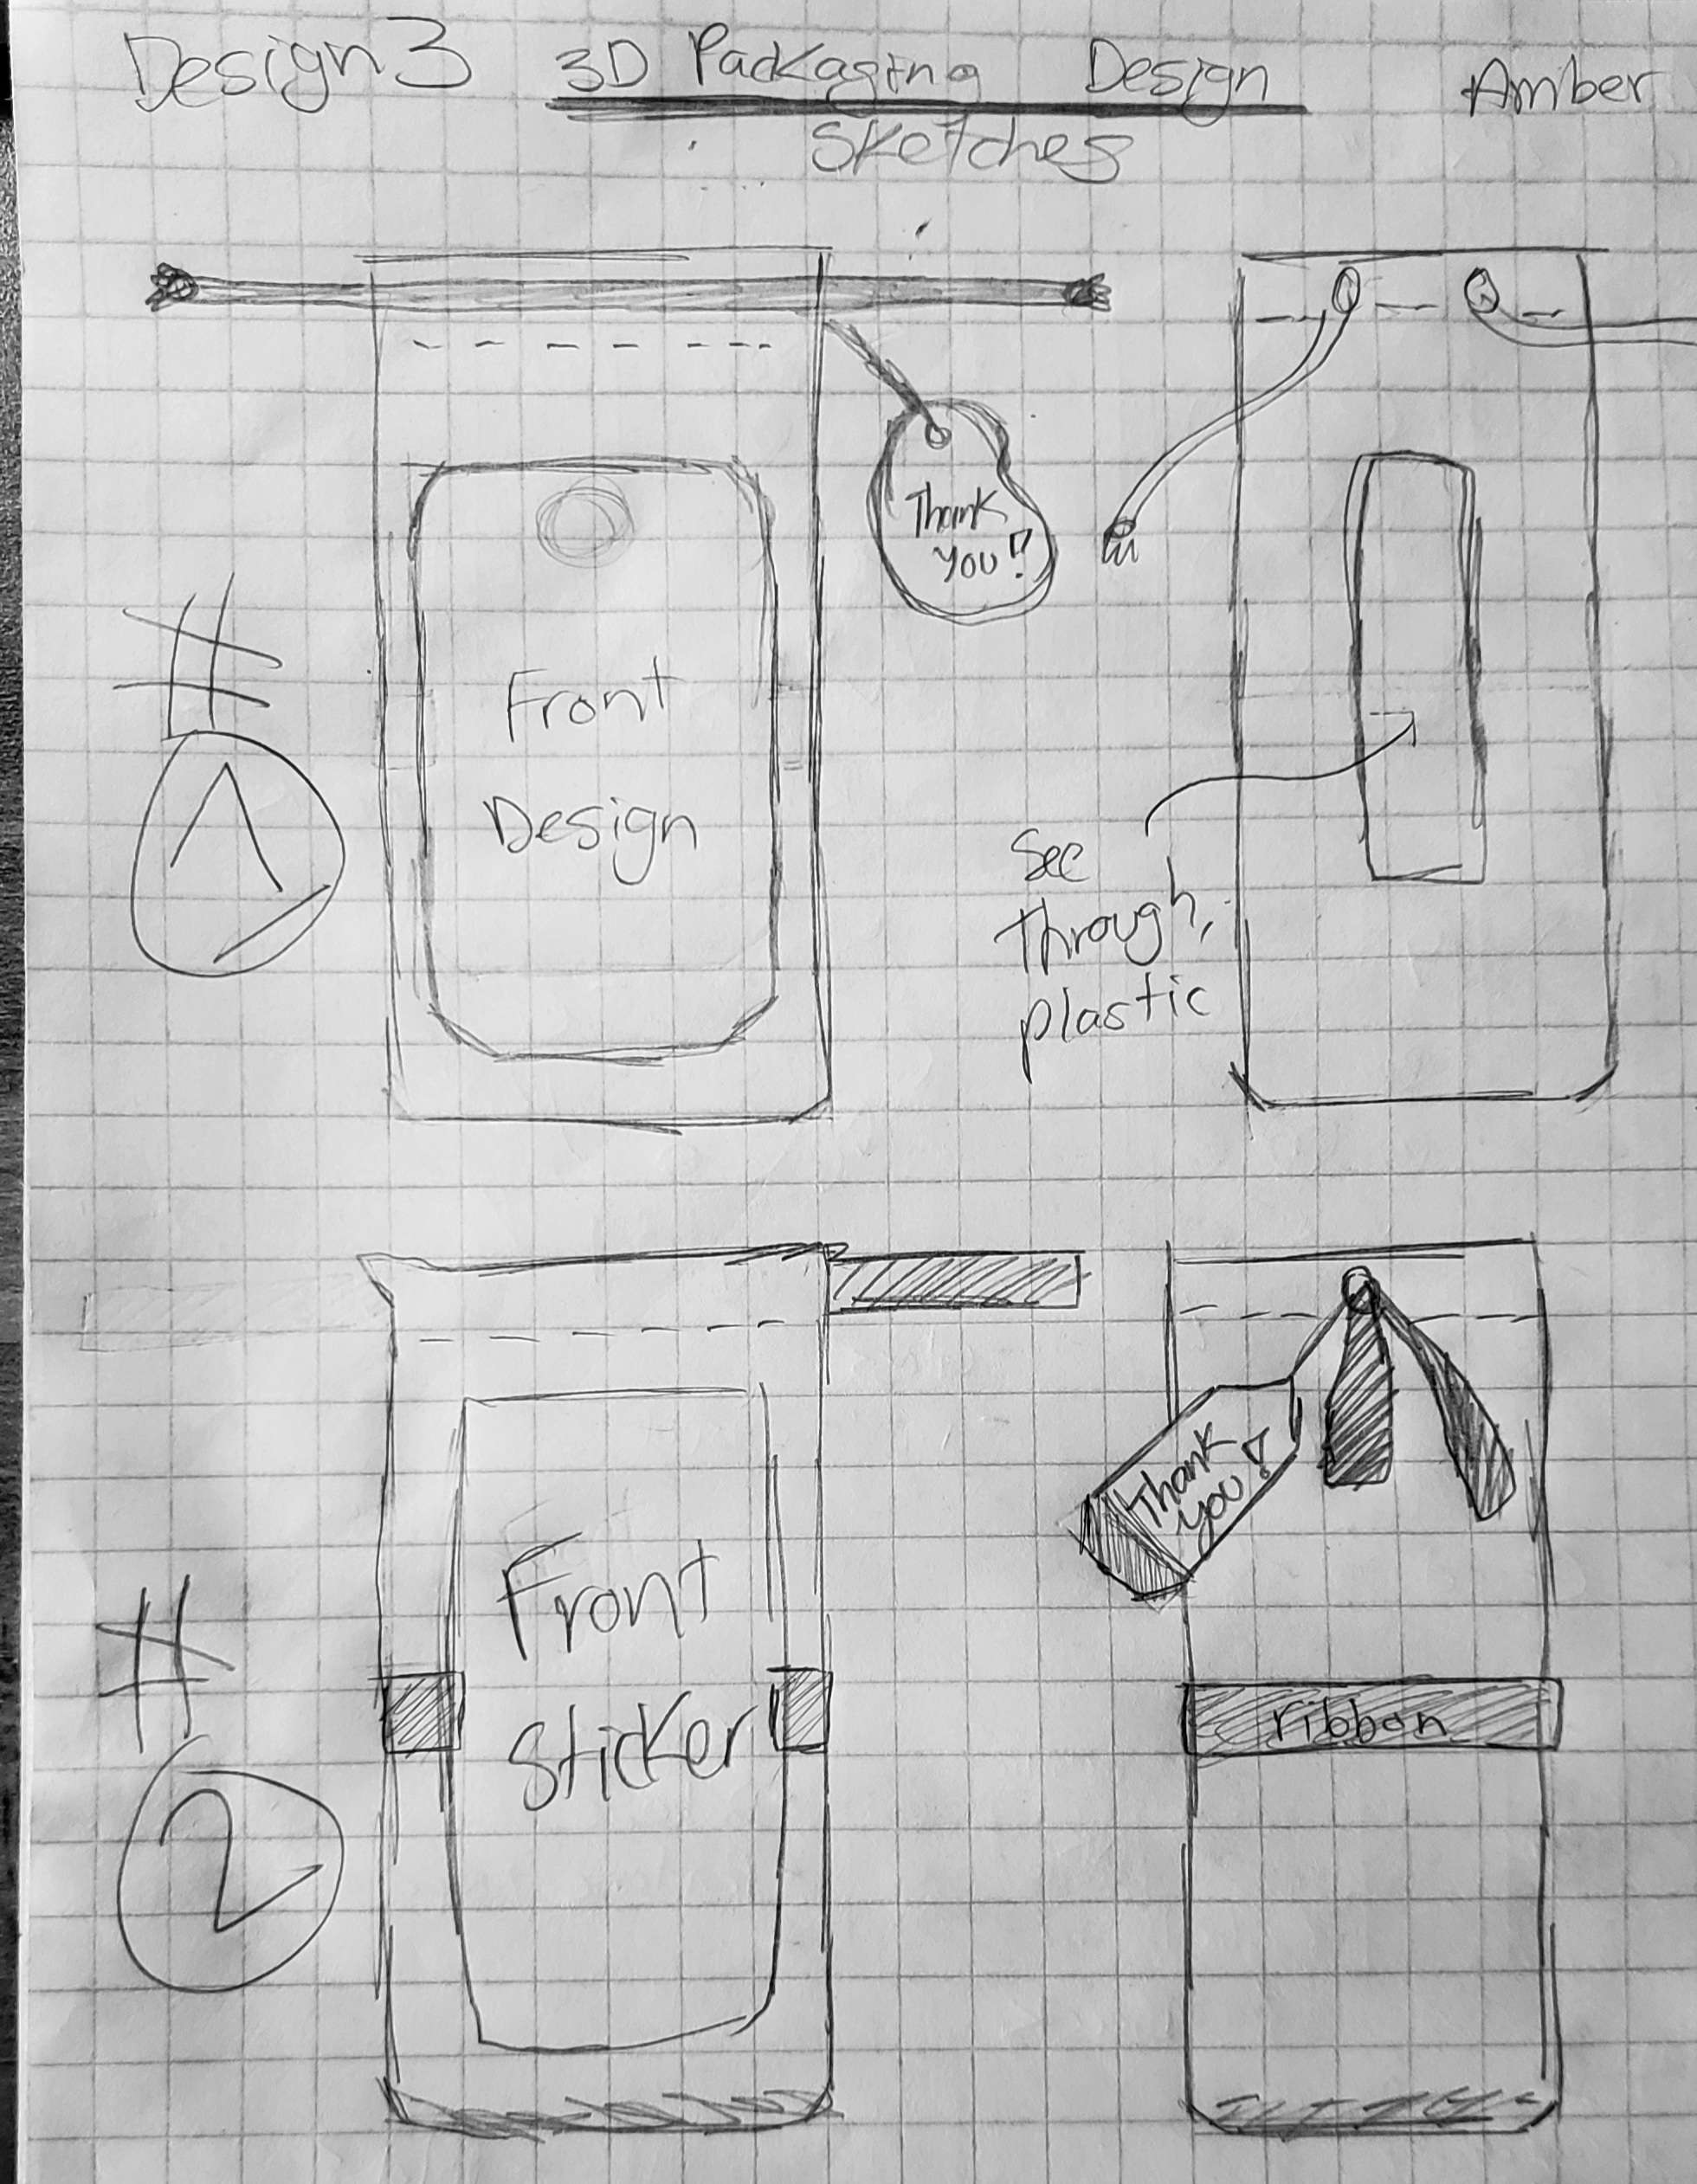 Design 3 3D Packaging Design Amber
Sketches
Thank
you!
Front
Design
#
1
See
Through
plastic
Thank
you!
Front
Sticker
ribbon
#
2